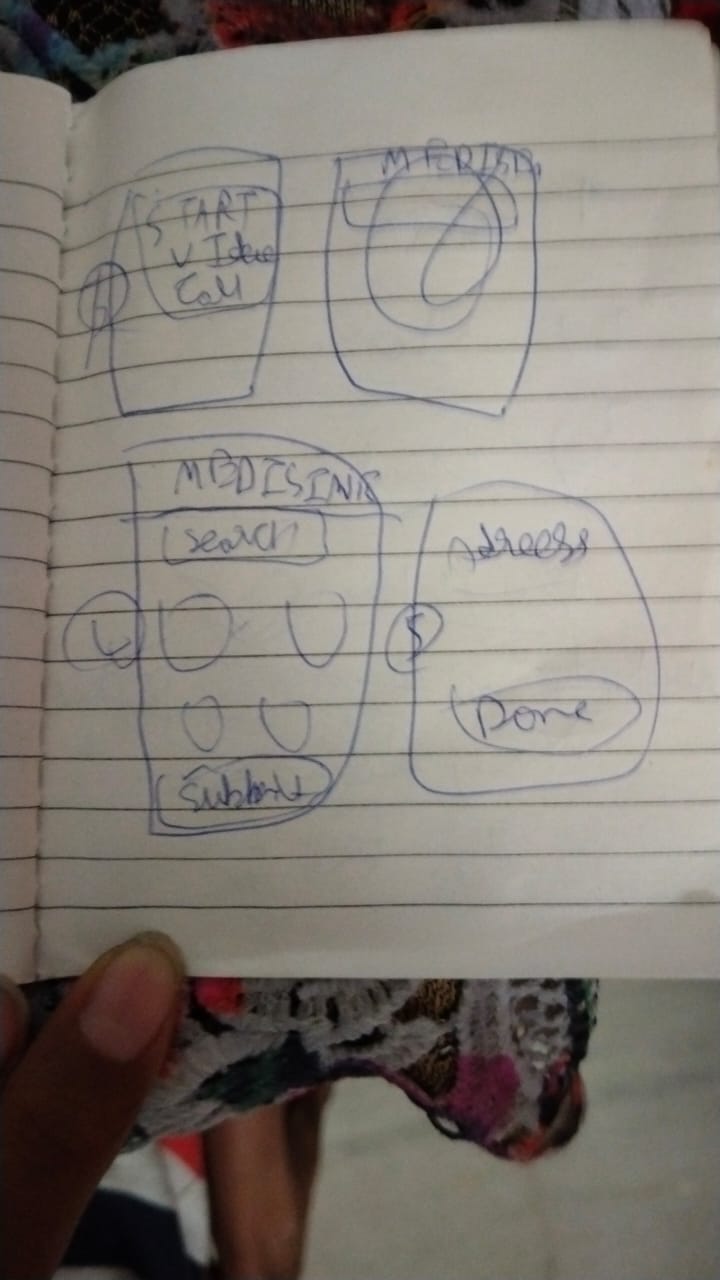 START
Video
Call
MEDISI
MEDISINE
Search
Adreess
5
Done